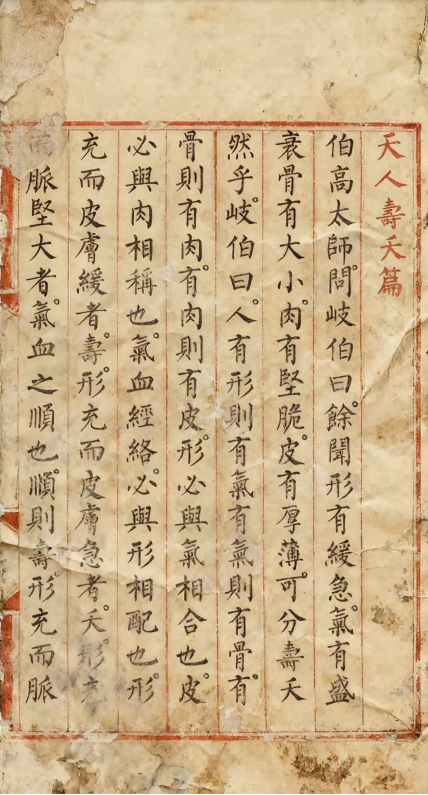 天人壽夭篇
伯高太師問。岐伯曰。餘聞形有緩急。氣有盛
衰骨有大小。肉有堅脆。皮有厚薄。可分壽夭
然乎。岐伯曰。人有形則有氣有氣則有骨。有。
骨則有肉。有肉則有皮。形必與氣相合也。皮。
必與肉相稱也。氣血經絡。必與形相配也。形。
充而皮膚緩者。壽。形充而皮膚急者。夭。形充
而脈堅大者。氣血之順也。順則壽。形充而脈